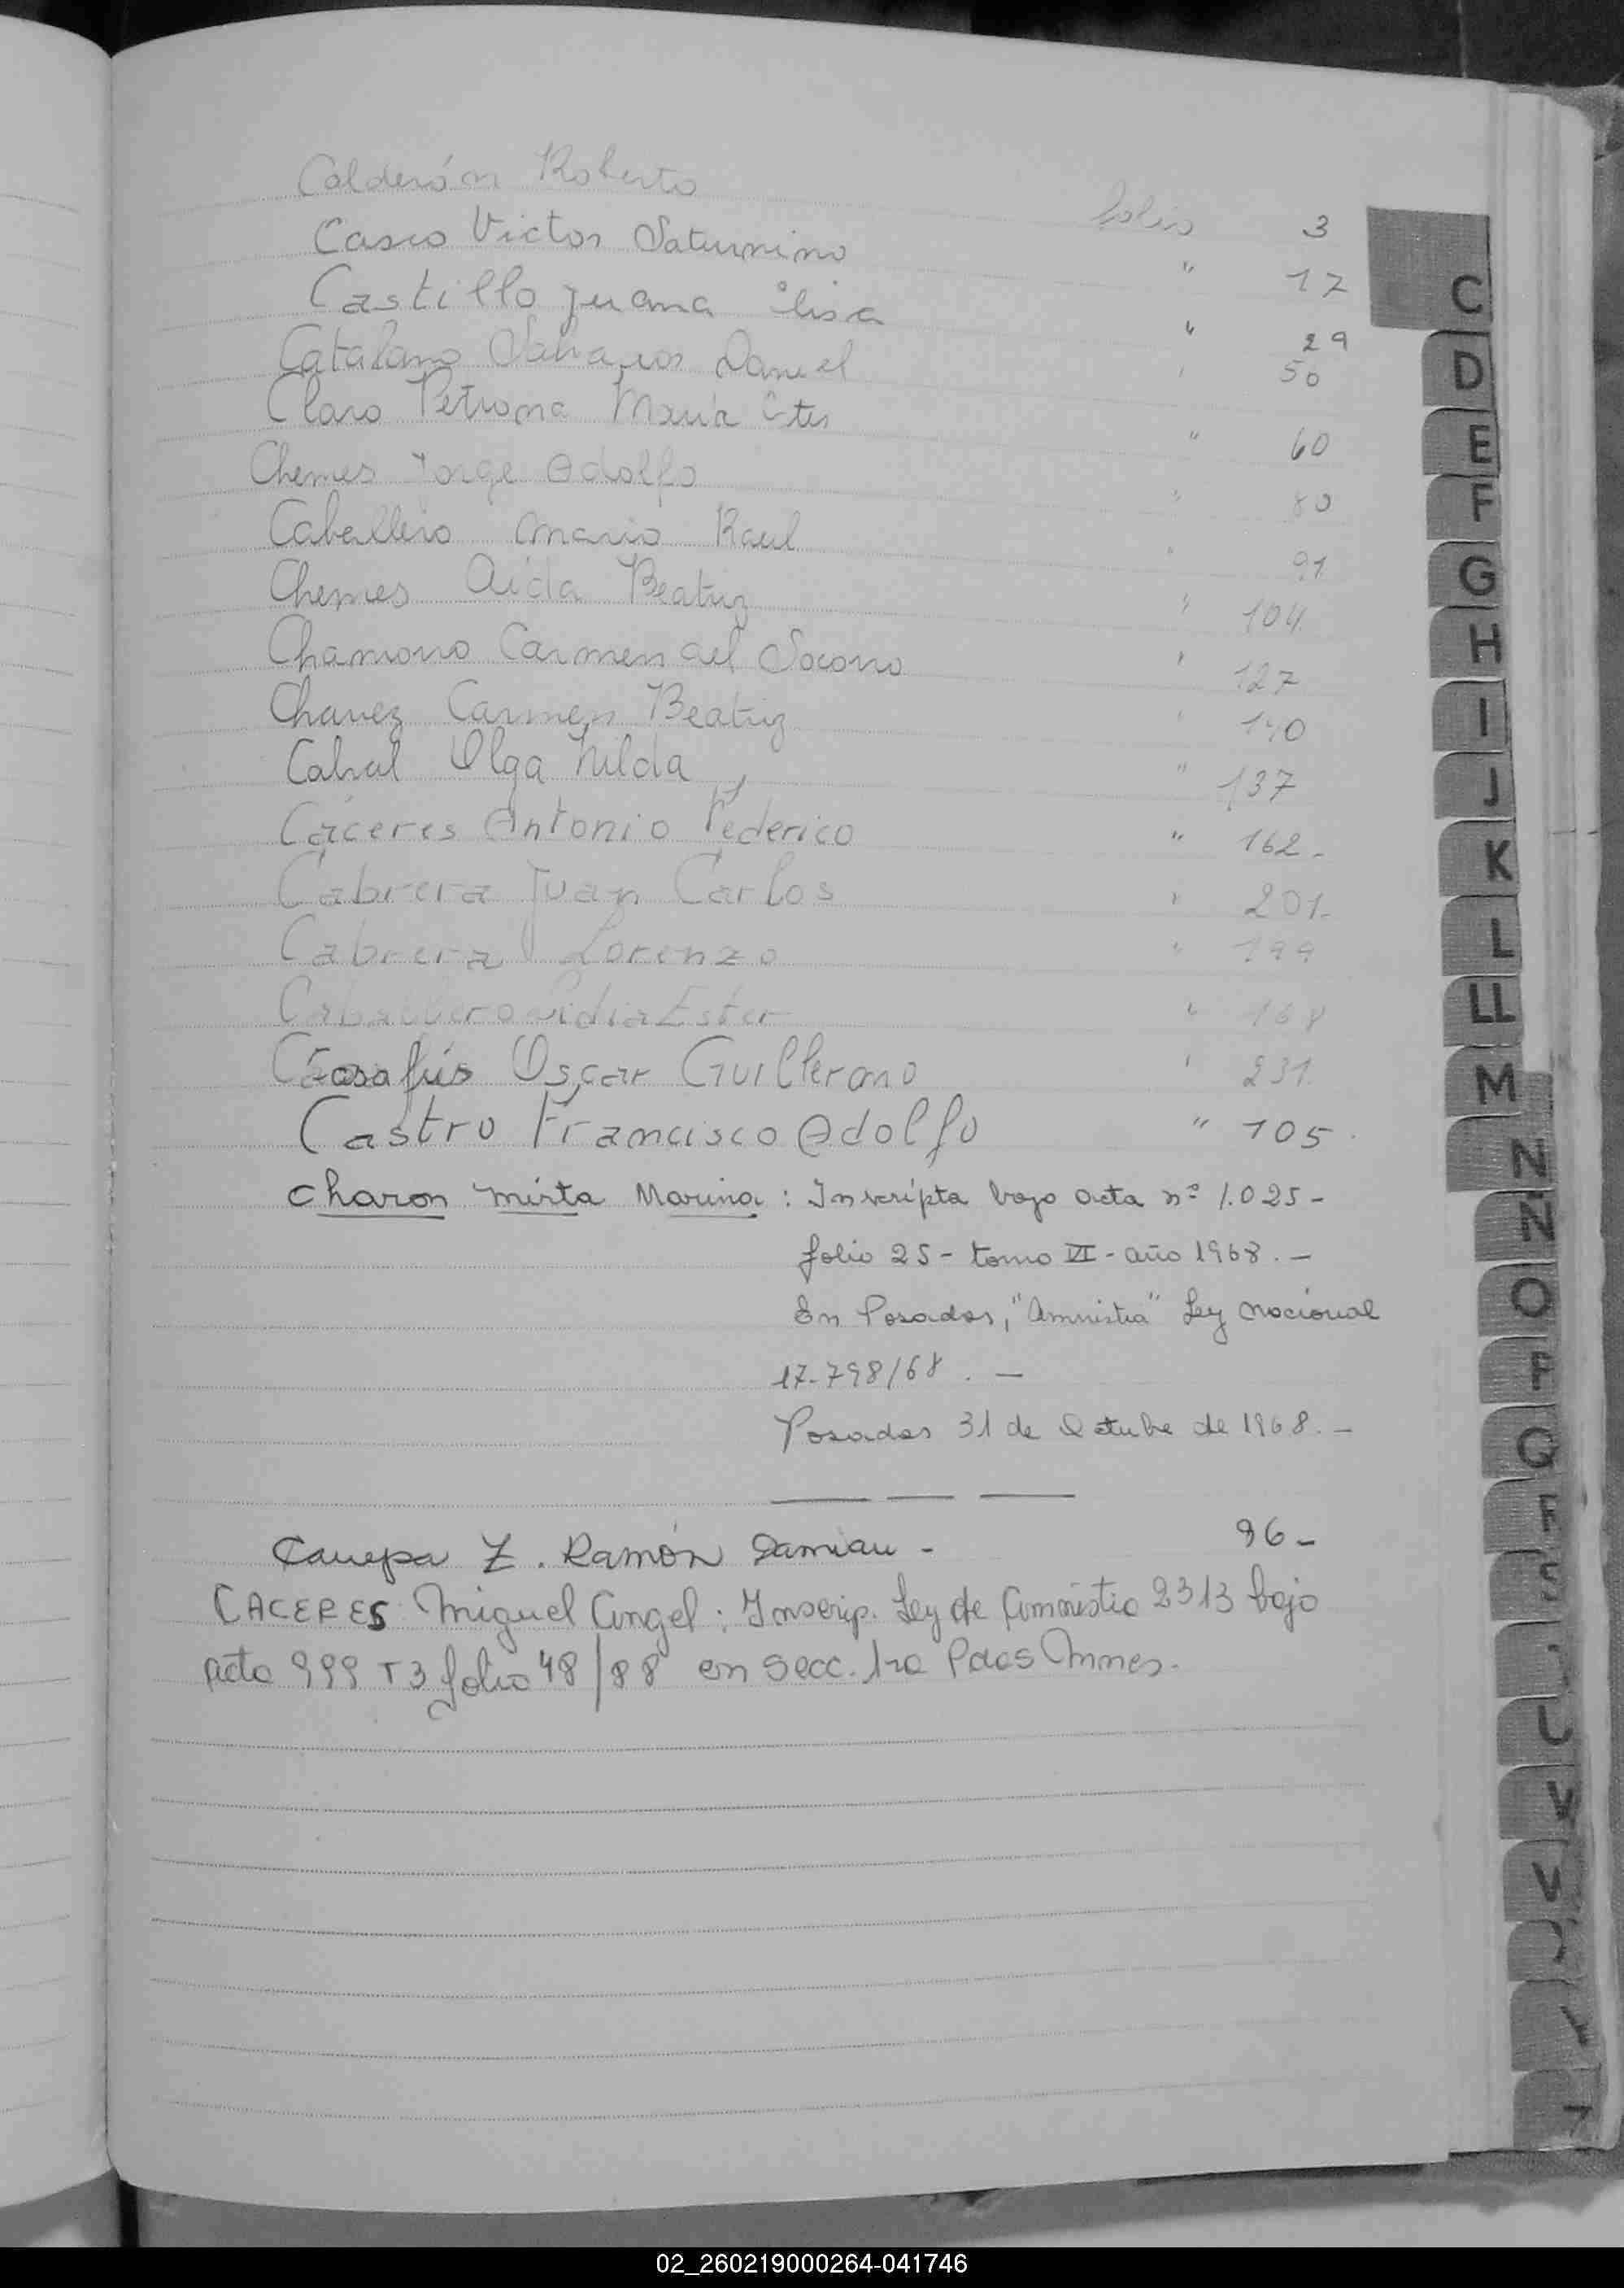 Calderón Roberto folio 3
Casco Victor Saturnino " 17
Castillo Juana Elisa " 29
Catalano Daniel " 50
Claro Petrona Maria Ester " 60
Chemes Jorge Adolfo " 80
Caballero Mario Raul " 91
Chemes Aida Beatriz " 104
Chamorro Carmen del Socorro " 127
Chavez Carmen Beatriz " 140
Cabral Olga Nilda " 137
Cáceres Antonio Federico " 162-
Cabrera Juan Carlos " 201-
Cabrera Lorenzo " 199
Caballero Lidia Ester " 168
Casafús Oscar Guillermo " 231
Castro Francisco Adolfo " 105
Charon Mirta Marina: Inscripta bajo acta nº 1.025-
folio 25- tomo VI- año 1968.-
En Posadas, "Amnistia" Ley Nacional
17.798/68.-
Posadas 31 de Octubre de 1968.-
Canepa Z. Ramón Damian - 96-
CACERES Miguel Angel: Inscrip. Ley de Amnistia 2313 bajo
Acta 999 T3 folio 48/88 en Secc. 1ra Pdas Mnes.
C
D
E
F
G
H
I
J
K
L
LL
M
N
Ñ
O
P
Q
R
S
U
V
Y
Z
02_260219000264-041746